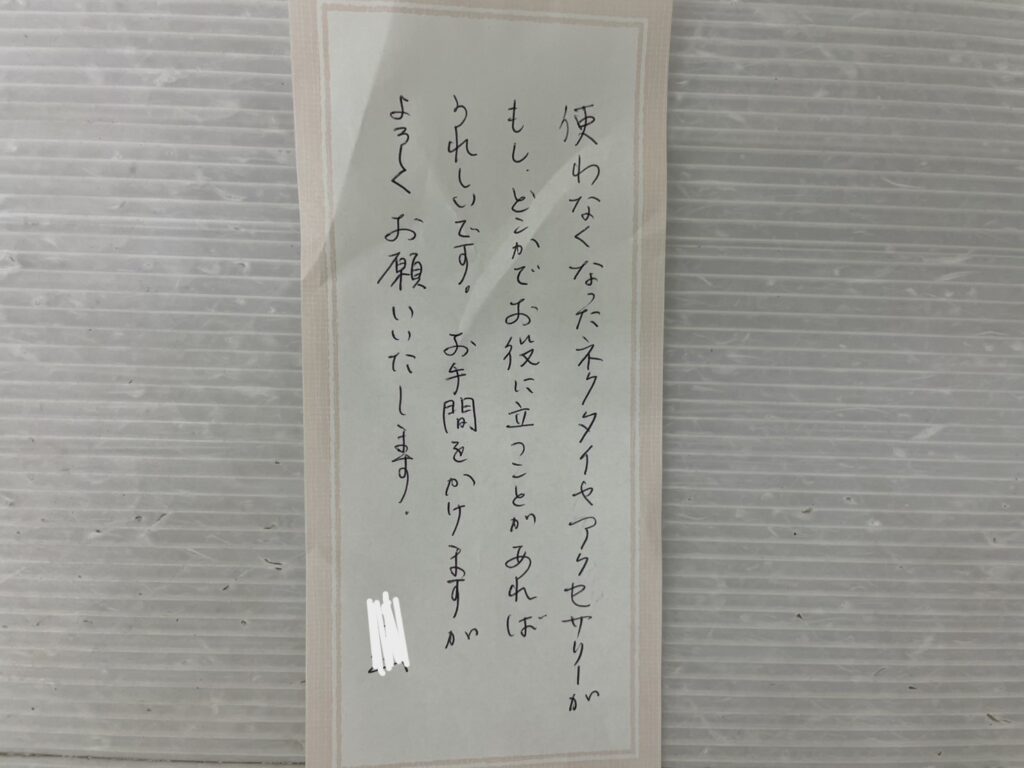 使わなくなったネクタイやアクセサリーが
もし、どこかでお役に立つことがあれば
うれしいです。 お手間をかけますが
よろしくお願いいたします。